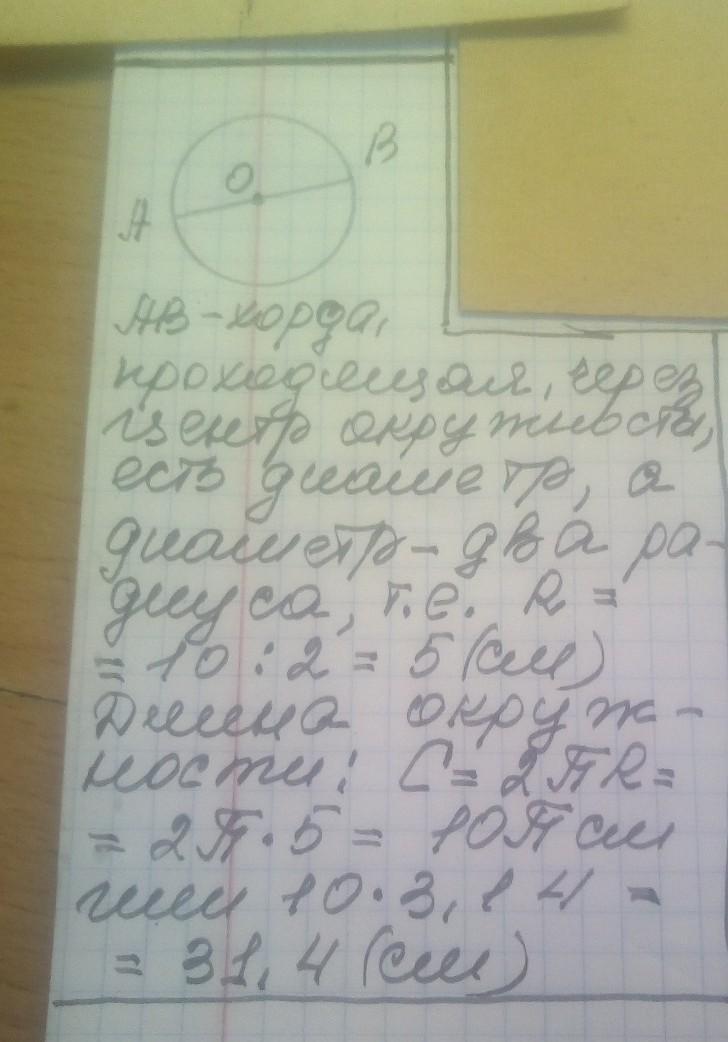 O
B
A
AB - хорда,
проходящая, через
центр окружности,
есть диаметр, а
диаметр - два ра-
диуса, т.е. R =
= 10 : 2 = 5 (см)
Длина окруж-
ности: C = 2πR =
= 2π · 5 = 10π см
или 10 · 3,14 =
= 31,4 (см)